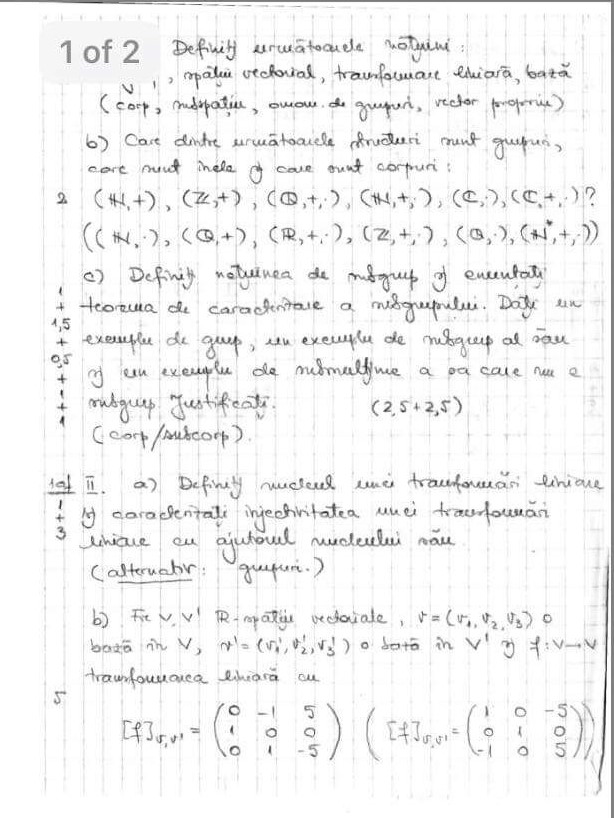 1 of 2
Definiți următoarele noțiuni :
, spațiu vectorial, transformare liniară, bază
(corp, subspațiu, omom. de grupuri, vector propriu)
b) Care dintre următoarele structuri sunt grupuri,
care sunt inele și care sunt corpuri :
2 (ℕ,+), (ℤ,+), (ℚ,+,·), (ℕ,+,·), (ℂ,·), (ℂ,+,·)?
((ℕ,·), (ℚ,+), (ℝ,+,·), (ℤ,+,·), (ℚ,·), (ℕ*,+,·))
c) Definiți noțiunea de subgrup și enunțați
1 + teorema de caracterizare a subgrupului. Dați un
1,5 + exemplu de grup, un exemplu de subgrup al său
0,5 + și un exemplu de submulțime a sa care nu e
1 + 1 subgrup. Justificați. (2,5+2,5)
(corp/subcorp).
10p II. a) Definiți nucleul unei transformări liniare
1 + și caracterizați injectivitatea unei transformări
3 liniare cu ajutorul nucleului său.
(alternativ: grupuri.)
b) Fie V, V' ℝ-spații vectoriale, v=(v₁,v₂,v₃) o
bază în V, v'=(v₁',v₂',v₃') o bază în V' și f:V→V
transformarea liniară cu
5
[f]ᵥ,ᵥ' = (0 -1 5 ([f]ᵥ,ᵥ' = (1 0 -5
1 0 0 0 1 0
0 1 -5) -1 0 5))